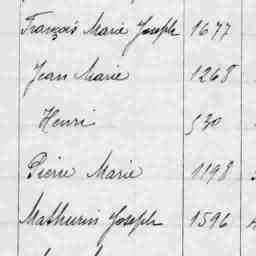 François Marie Joseph 1677
Jean Marie 1268
Henri 530
Pierre Marie 1198
Mathurin Joseph 1596